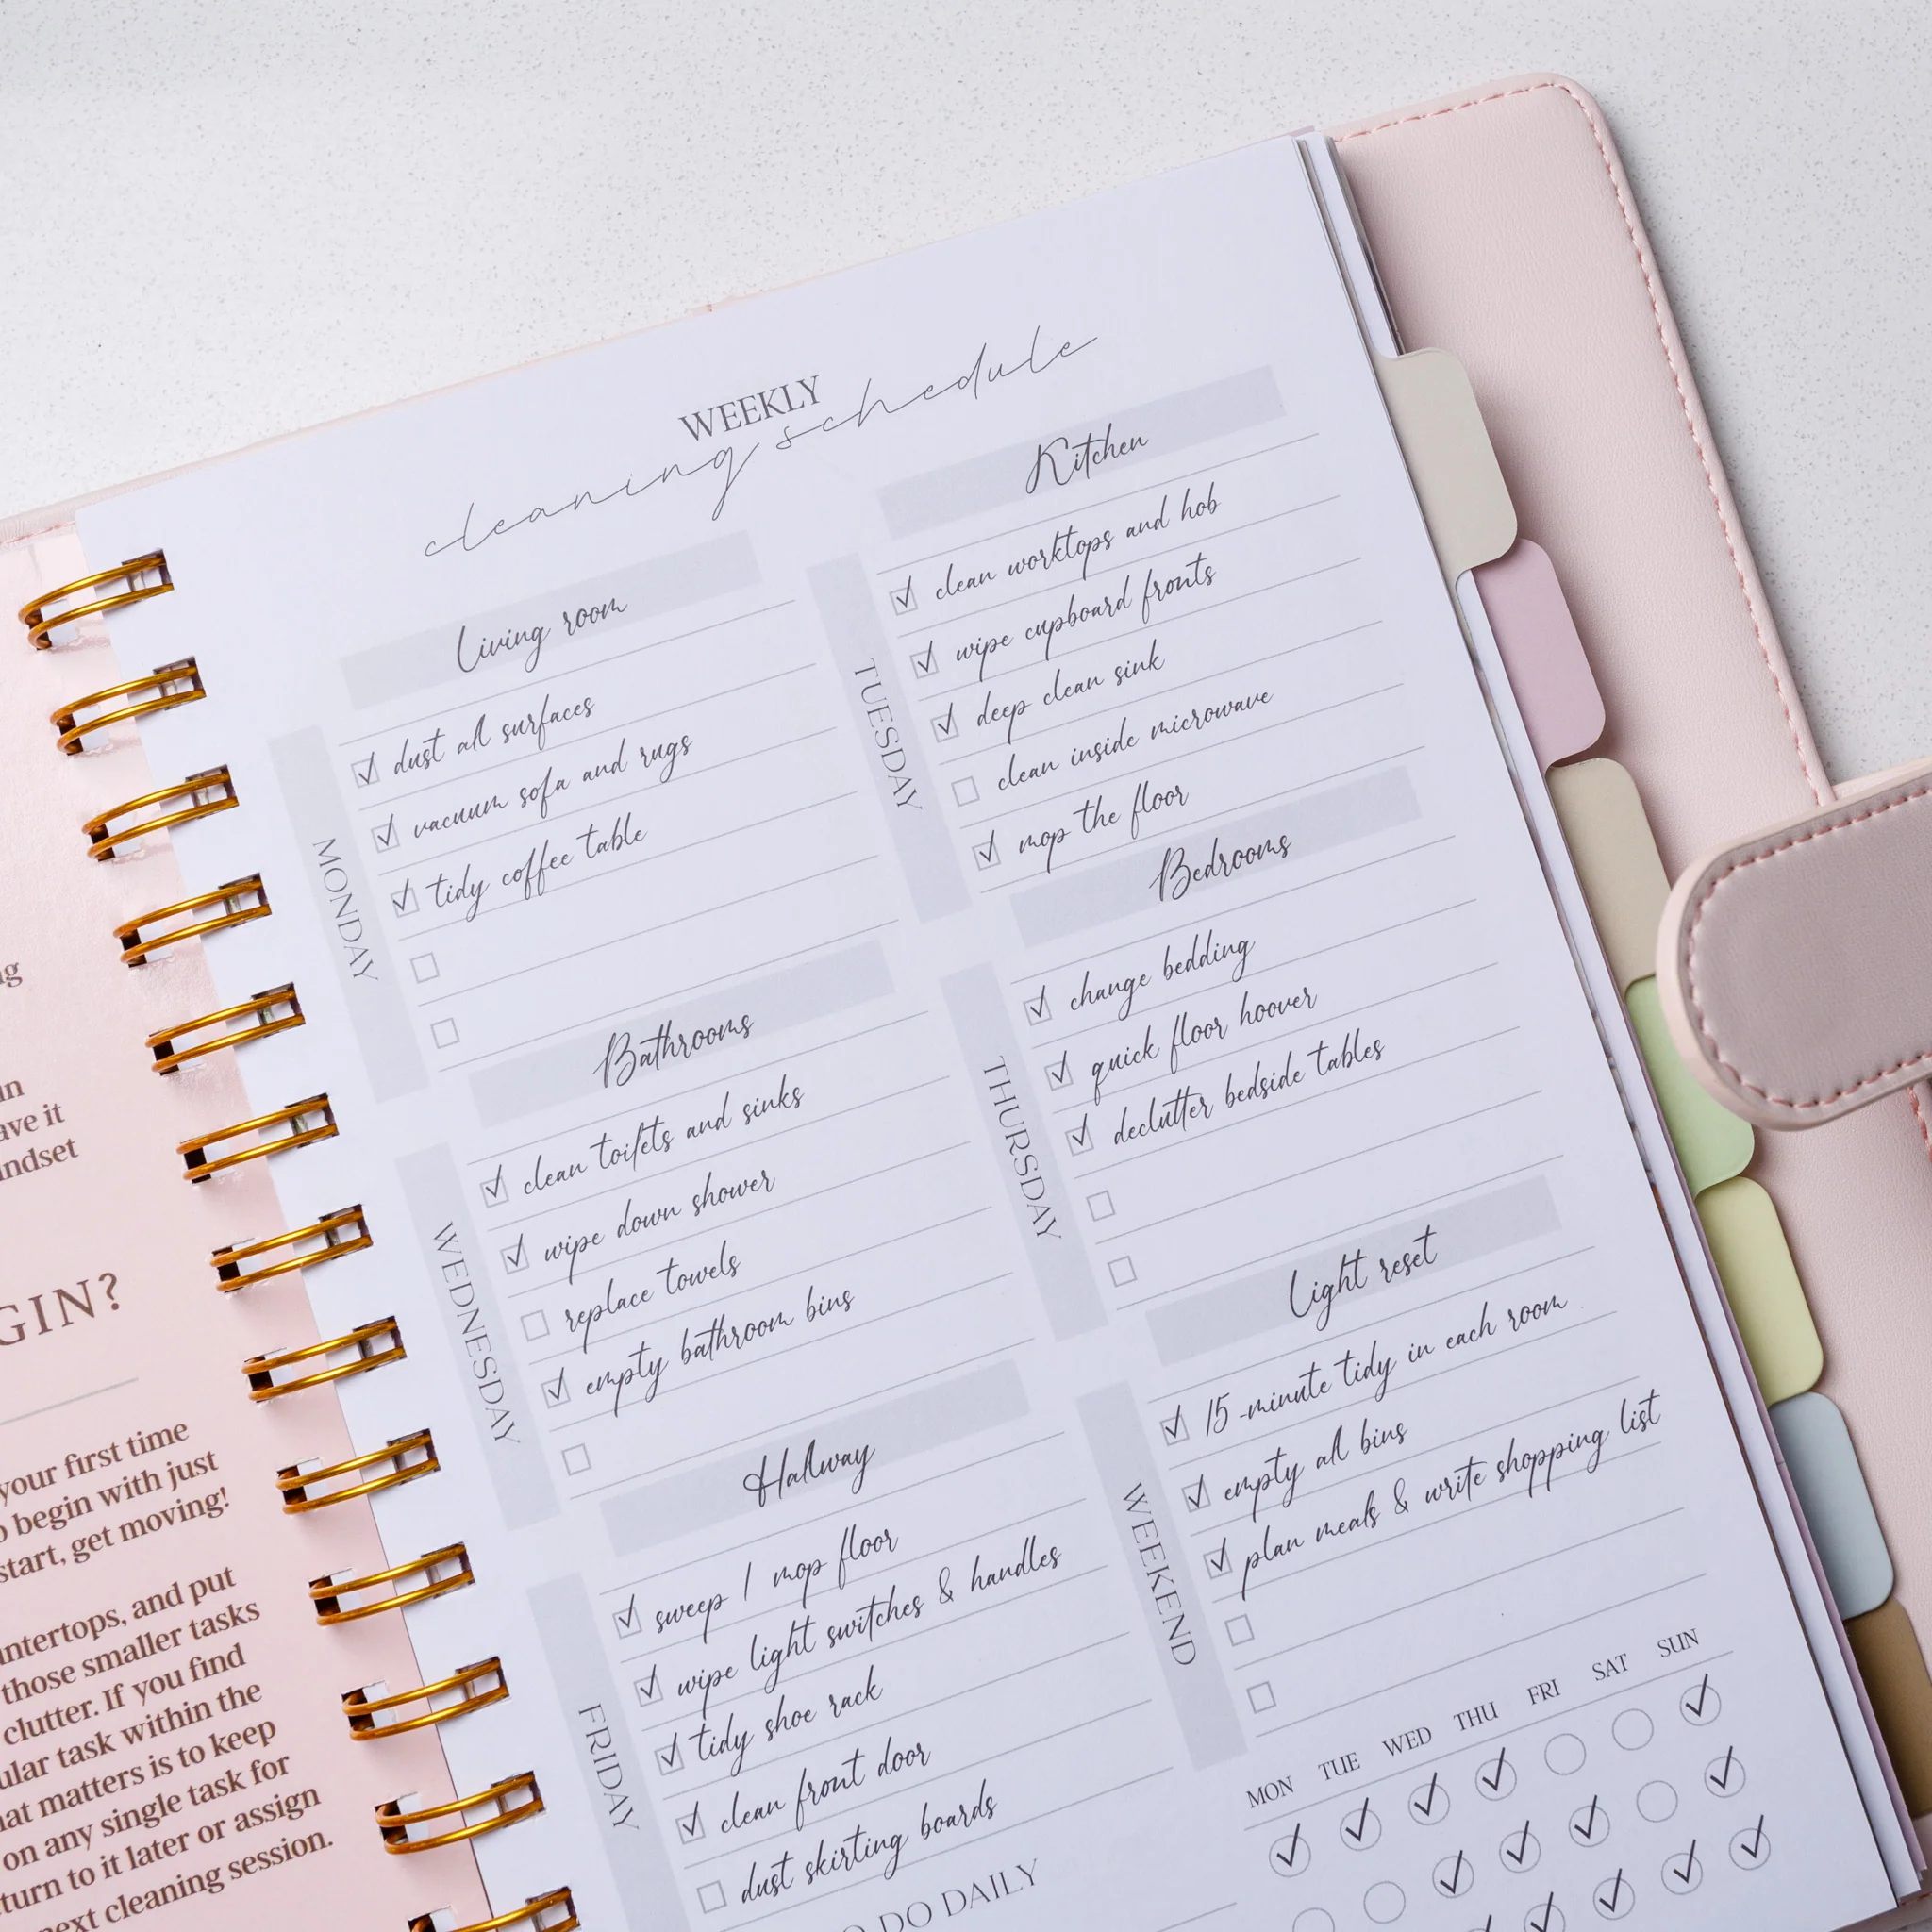 WEEKLY
cleaning schedule
MONDAY
Living room
dust all surfaces
vacuum sofa and rugs
tidy coffee table
TUESDAY
Kitchen
clean worktops and hob
wipe cupboard fronts
deep clean sink
clean inside microwave
mop the floor
WEDNESDAY
Bathrooms
clean toilets and sinks
wipe down shower
replace towels
empty bathroom bins
THURSDAY
Bedrooms
change bedding
quick floor hoover
declutter bedside tables
FRIDAY
Hallway
sweep / mop floor
wipe light switches & handles
tidy shoe rack
clean front door
dust skirting boards
WEEKEND
Light reset
15-minute tidy in each room
empty all bins
plan meals & write shopping list
DO DAILY
MON TUE WED THU FRI SAT SUN
your first time
begin with just
start, get moving!
and put
those smaller tasks
clutter. If you find
task within the
matters is to keep
on any single task for
to it later or assign
cleaning session.